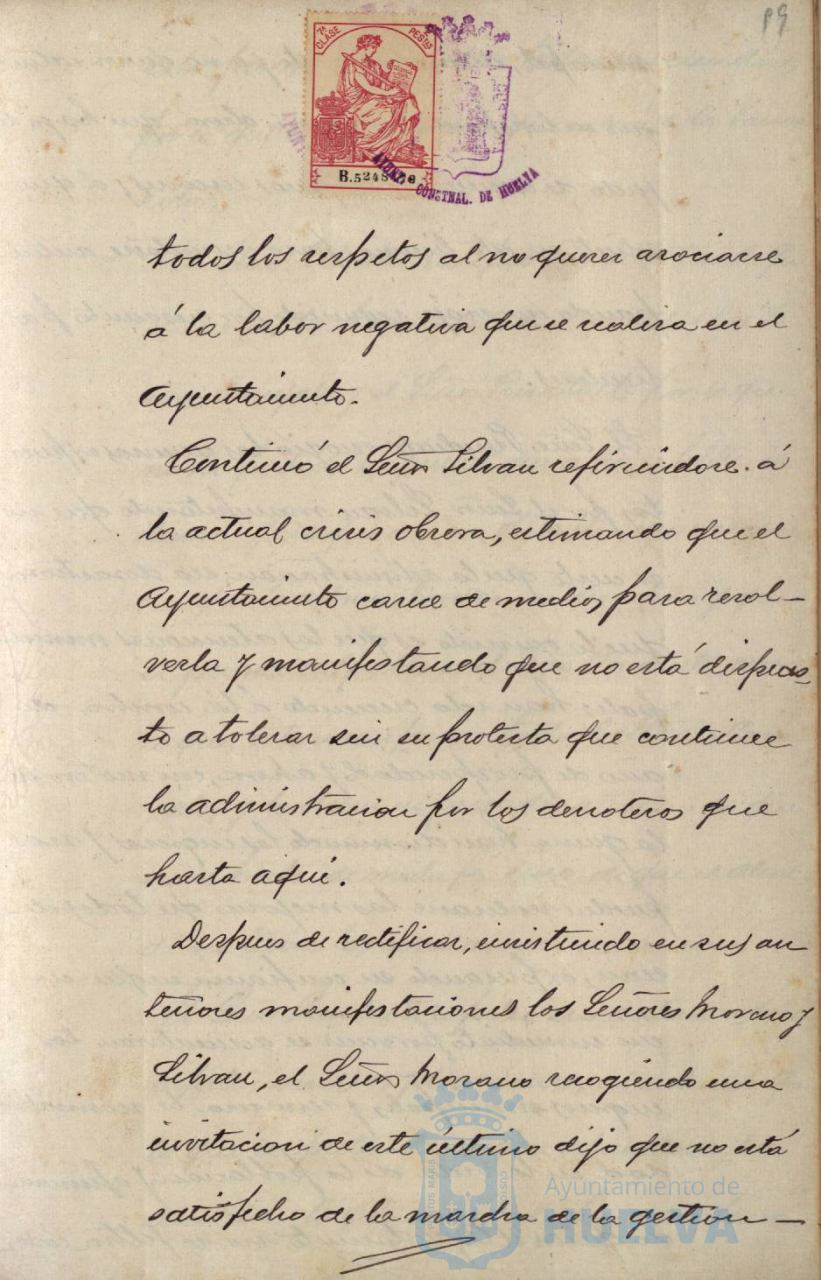 99
7ª CLASE PESETAS
B.5248
AYUNT. CONSTNAL. DE HUELVA
todos los respetos al no querer asociarse
á la labor negativa que se realiza en el
Ayuntamiento.
Continuó el Señor Silvan refiriendose á
la actual crisis obrera, estimando que el
Ayuntamiento carece de medios para resol-
verla y manifestando que no está dispues-
to a tolerar sin su protesta que continue
la administracion por los derroteros que
hasta aquí.
Despues de rectificar, insistiendo en sus an
teriores manifestaciones los Señores Moreno y
Silvan, el Señor Moreno recogiendo una
invitacion de este último dijo que no está
satisfecho de la marcha de la gestion—
Ayuntamiento de
HUELVA